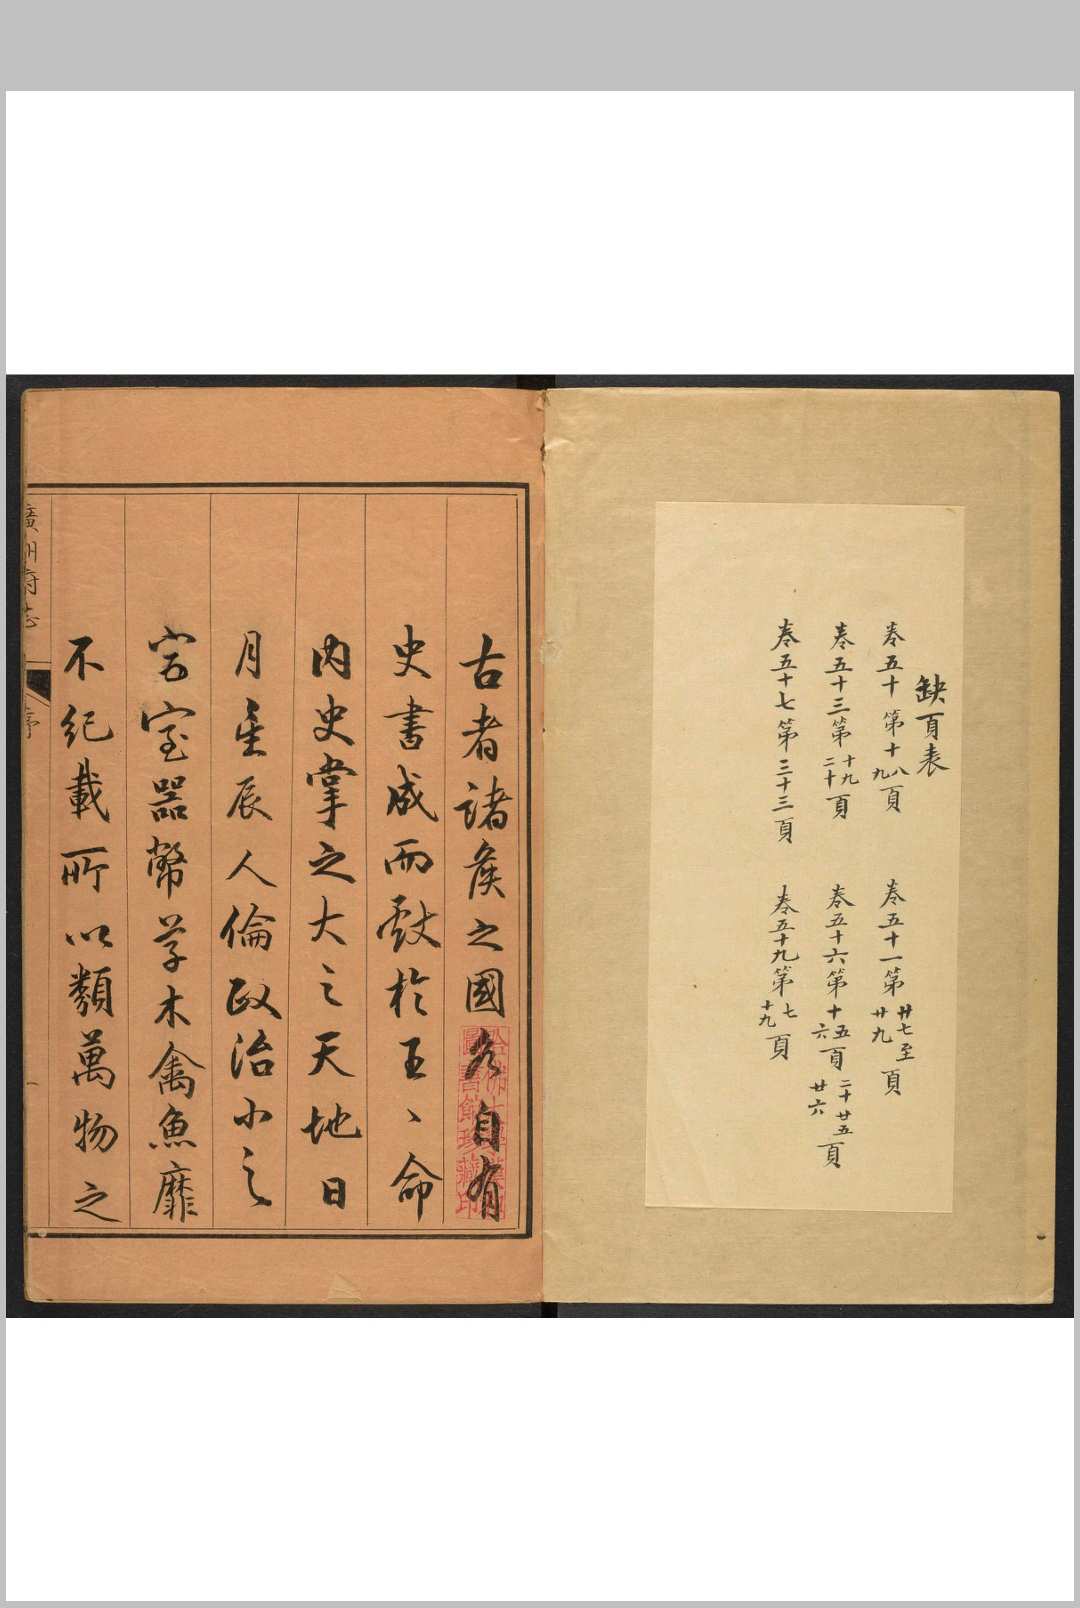 缺頁表
卷五十第十八九頁
卷五十一第廿七至廿九頁
卷五十三第十九二十頁
卷五十六第十五六頁二十廿五廿六頁
卷五十七第三十三頁
卷五十九第七十九頁
古者諸侯之國各自有
史書成而獻於王王命
内史掌之大之天地日
月星辰人倫政治小之
宮室器幣草木禽魚靡
不紀載所以類萬物之
廣州府志
序
一
哈佛大學漢和圖書館珍藏印